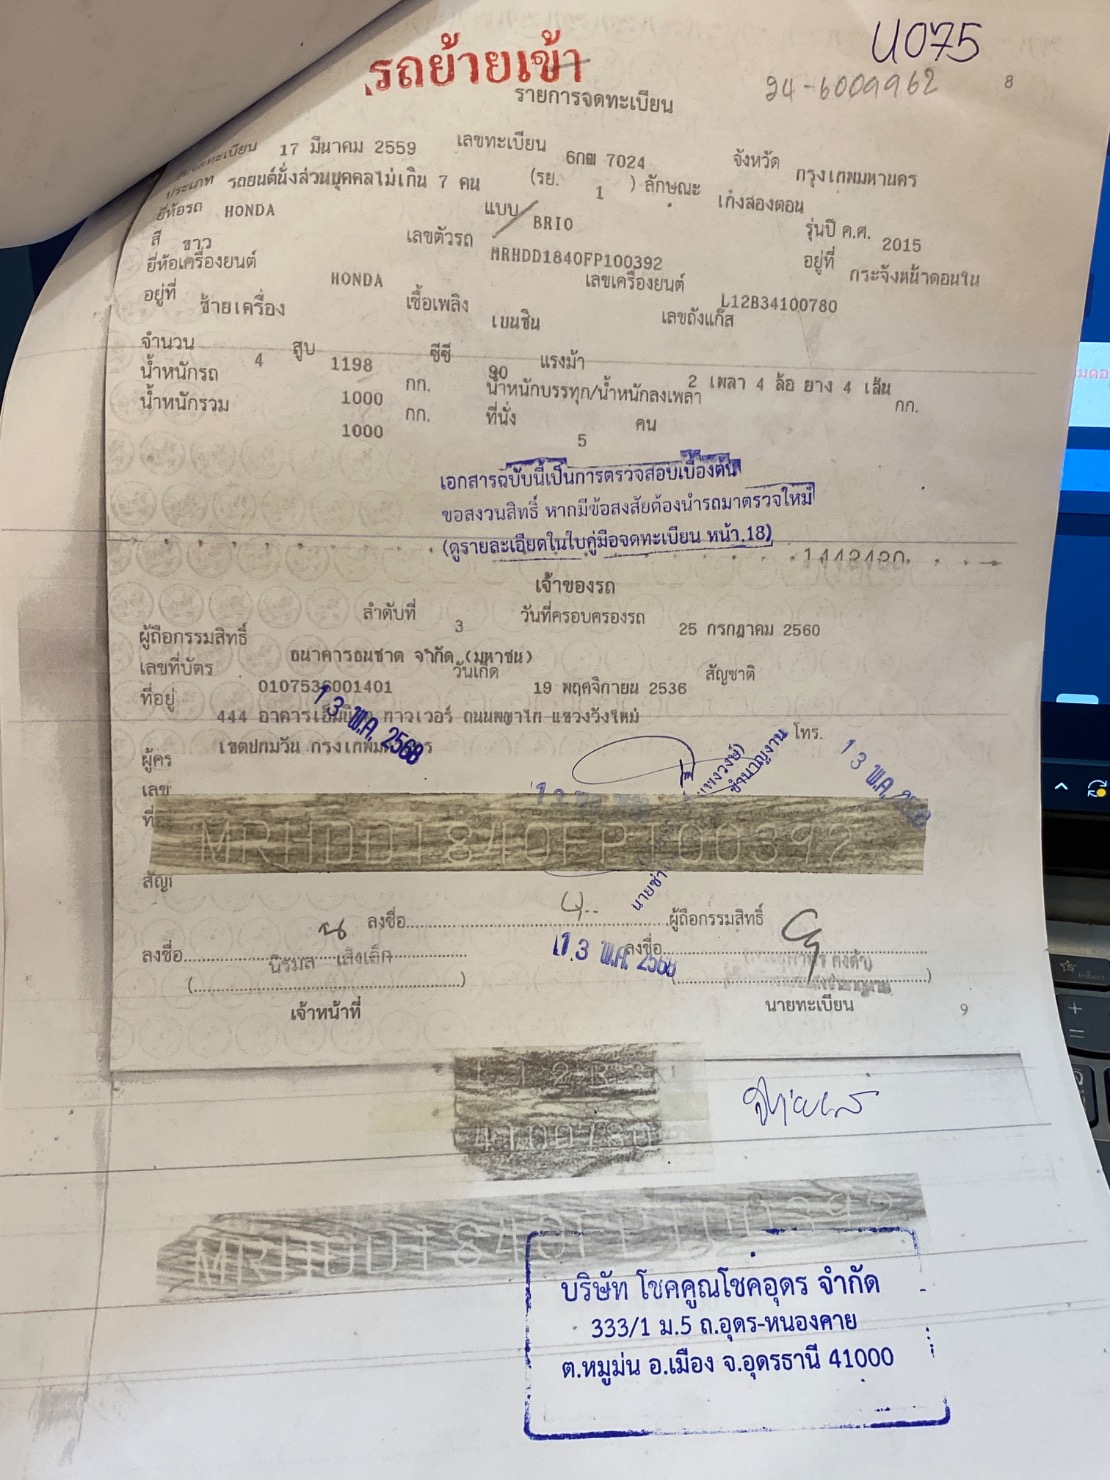 U075
รถย้ายเข้า
24-6009962
8
รายการจดทะเบียน
17 มีนาคม 2559 เลขทะเบียน 6กฒ 7024 จังหวัด กรุงเทพมหานคร
ประเภท รถยนต์นั่งส่วนบุคคลไม่เกิน 7 คน (รย. 1 ) ลักษณะ เก๋งสองตอน
ยี่ห้อรถ HONDA แบบ BRIO รุ่นปี ค.ศ. 2015
สี ขาว เลขตัวรถ MRHDD1840FP100392 อยู่ที่ กระจังหน้าตอนใน
ยี่ห้อเครื่องยนต์ HONDA เลขเครื่องยนต์ L12B34100780
อยู่ที่ ซ้ายเครื่อง เชื้อเพลิง เบนซิน เลขถังแก๊ส
จำนวน 4 สูบ 1198 ซีซี 90 แรงม้า 2 เพลา 4 ล้อ ยาง 4 เส้น
น้ำหนักรถ 1000 กก. น้ำหนักบรรทุก/น้ำหนักลงเพลา กก.
น้ำหนักรวม 1000 กก. ที่นั่ง 5 คน
เอกสารฉบับนี้เป็นการตรวจสอบเบื้องต้น
ขอสงวนสิทธิ์ หากมีข้อสงสัยต้องนำรถมาตรวจใหม่
(ดูรายละเอียดในใบคู่มือจดทะเบียน หน้า.18)
1442420
เจ้าของรถ
ลำดับที่ 3 วันที่ครอบครองรถ 25 กรกฎาคม 2560
ผู้ถือกรรมสิทธิ์ ธนาคารธนชาต จำกัด (มหาชน)
เลขที่บัตร 0107536001401 วันเกิด 19 พฤศจิกายน 2536 สัญชาติ
ที่อยู่ 444 อาคารเอ็มบีเค ทาวเวอร์ ถนนพญาไท แขวงวังใหม่
เขตปทุมวัน กรุงเทพมหานคร โทร.
13 พ.ค. 2568
13 พ.ค. 2568
ผู้คร
เลข
ที่
MRHDD1840FP100392
สัญ
ลงชื่อ ผู้ถือกรรมสิทธิ์
ลงชื่อ 13 พ.ค. 2568 ลงชื่อ
นิรมล เส็งเล็ก
เจ้าหน้าที่ นายทะเบียน
9
L12B3
4100780
MRHDD1840FP100392
บริษัท โชคคูณโชคอุดร จำกัด
333/1 ม.5 ถ.อุดร-หนองคาย
ต.หมูม่น อ.เมือง จ.อุดรธานี 41000